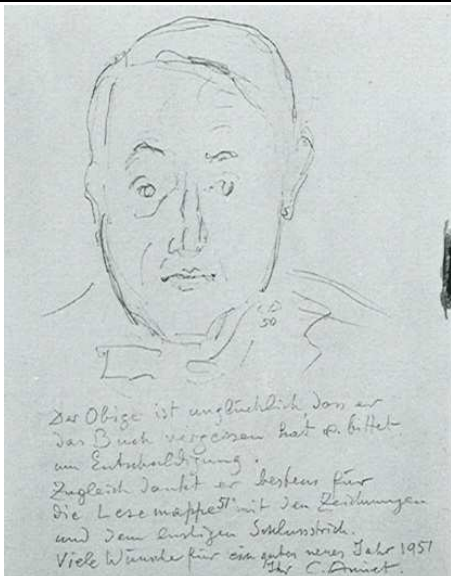 CA
50
Der Obige ist unglücklich, dass er
das Buch vergessen hat u. bittet
um Entschuldigung.
Zugleich dankt er bestens für
die Lesemappe 51 mit den Zeichnungen
und dem lustigen Schlussstrich.
Viele Wünsche für ein gutes neues Jahr 1951
Ihr C. Amiet.